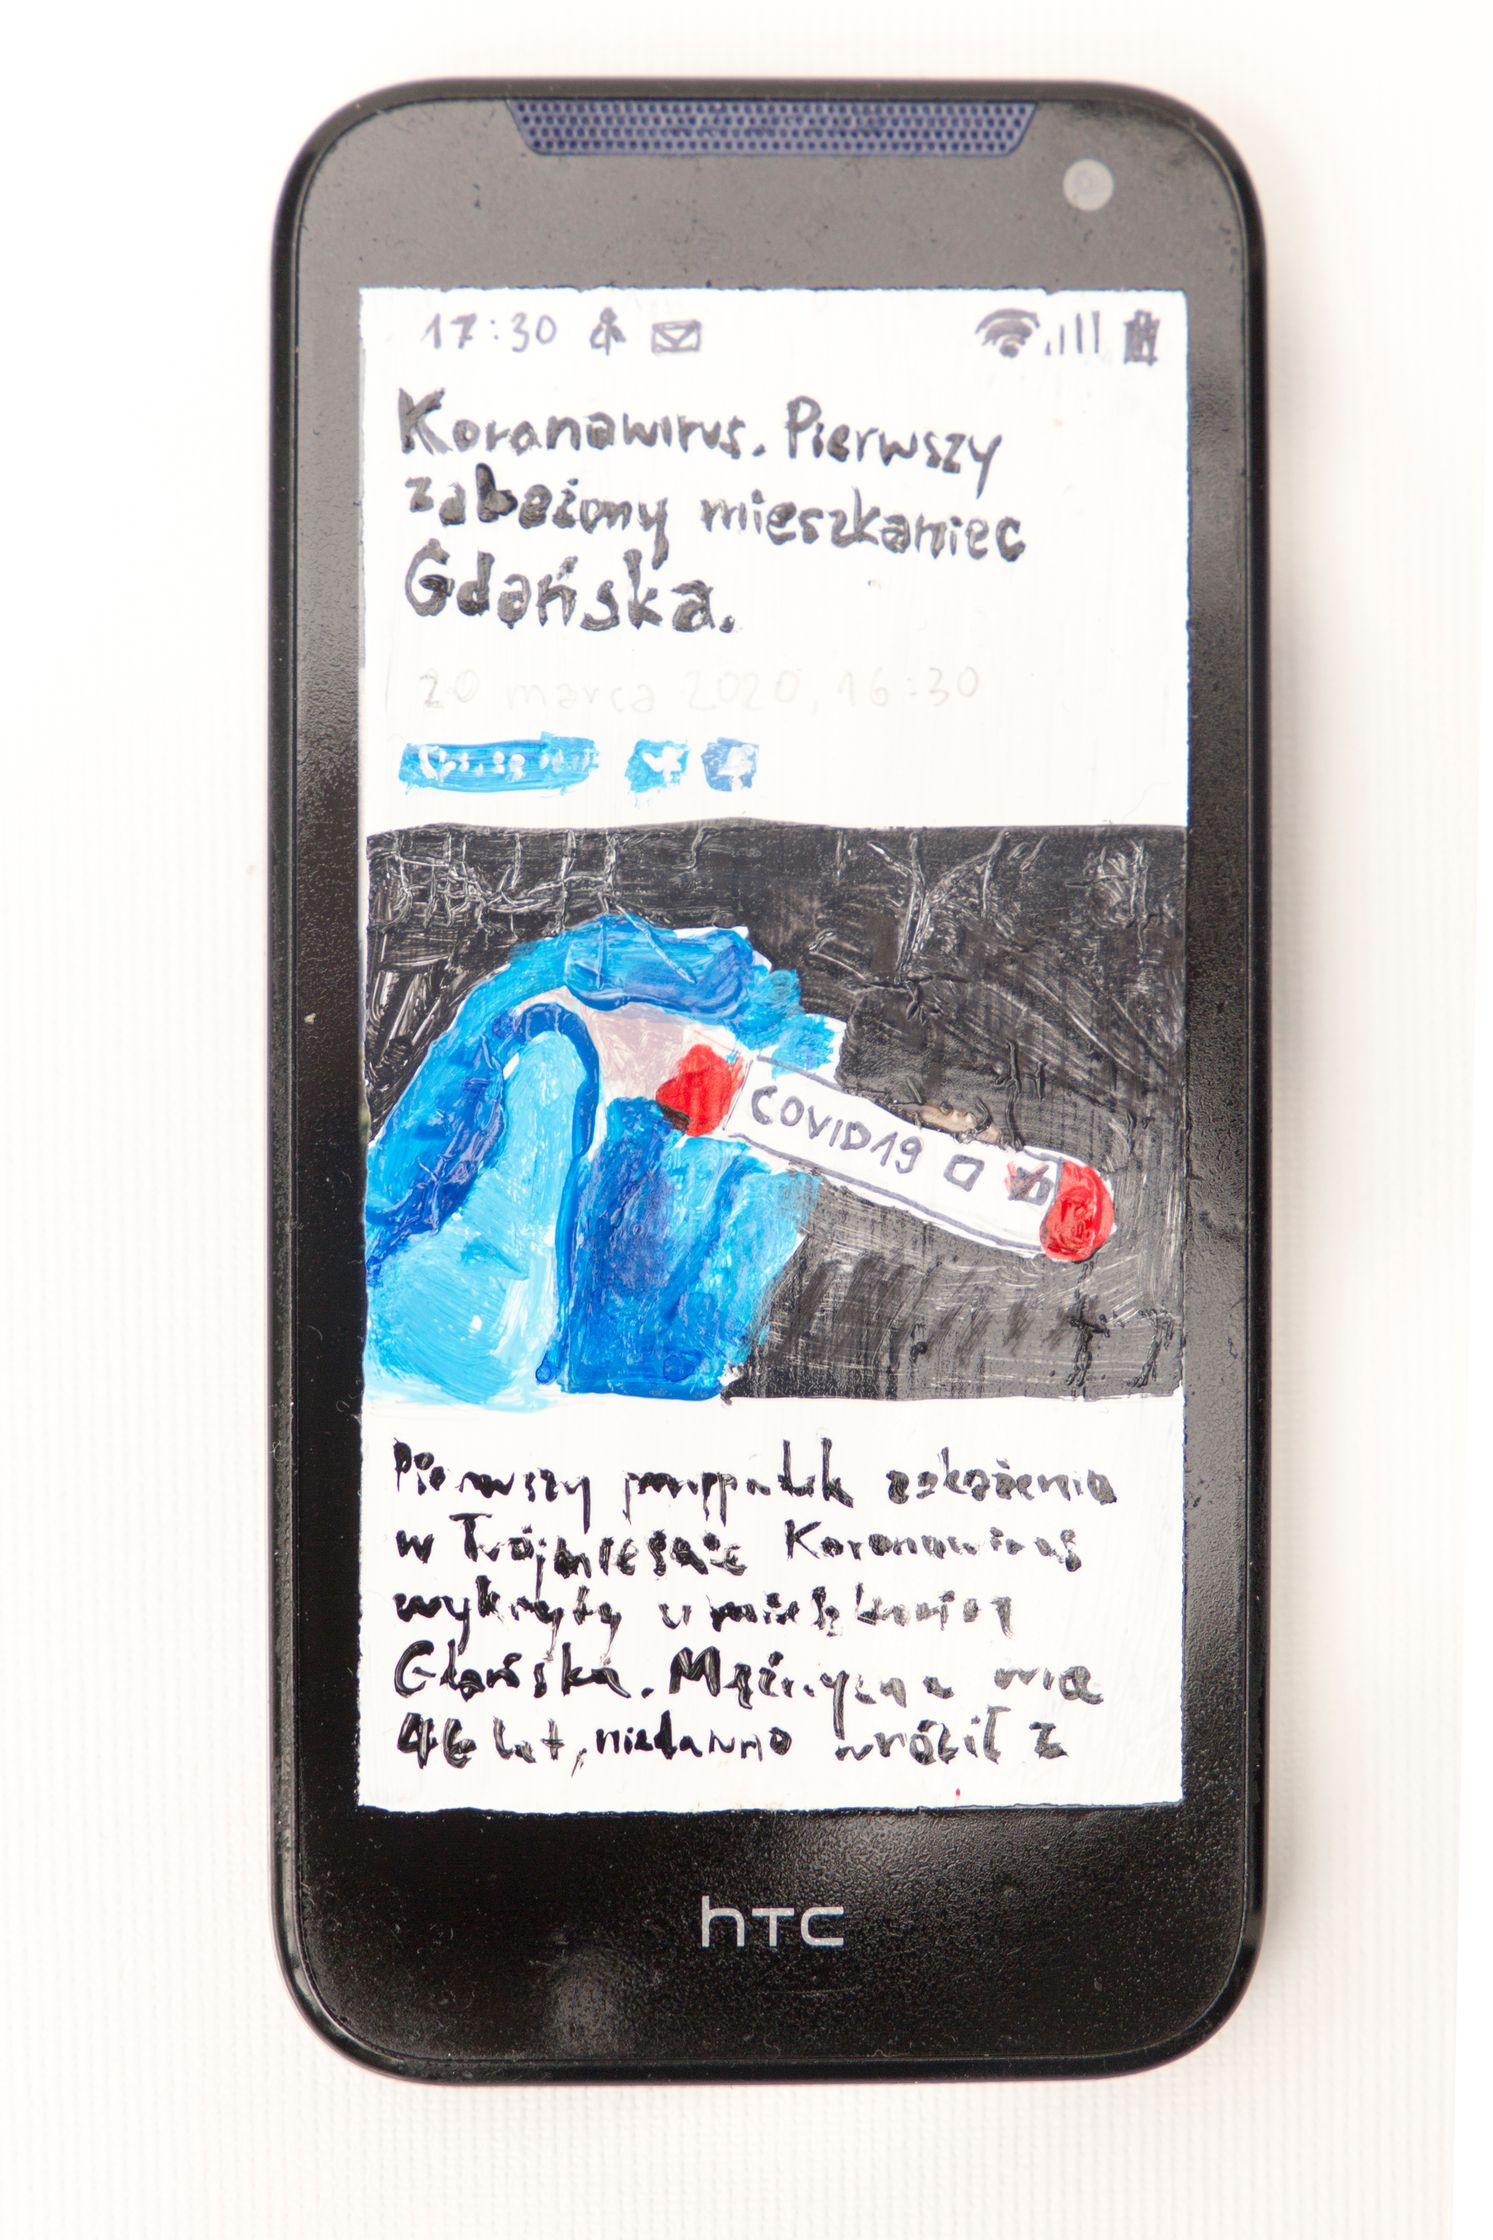 17:30
Koronawirus. Pierwszy
zakażony mieszkaniec
Gdańska.
20 marca 2020, 16:30
COVID19
Pierwszy przypadek zakażenia
w Trójmieście Koronawirus
wykryty u mieszkańca
Gdańska. Mężczyzna ma
46 lat, niedawno wrócił z
hTC